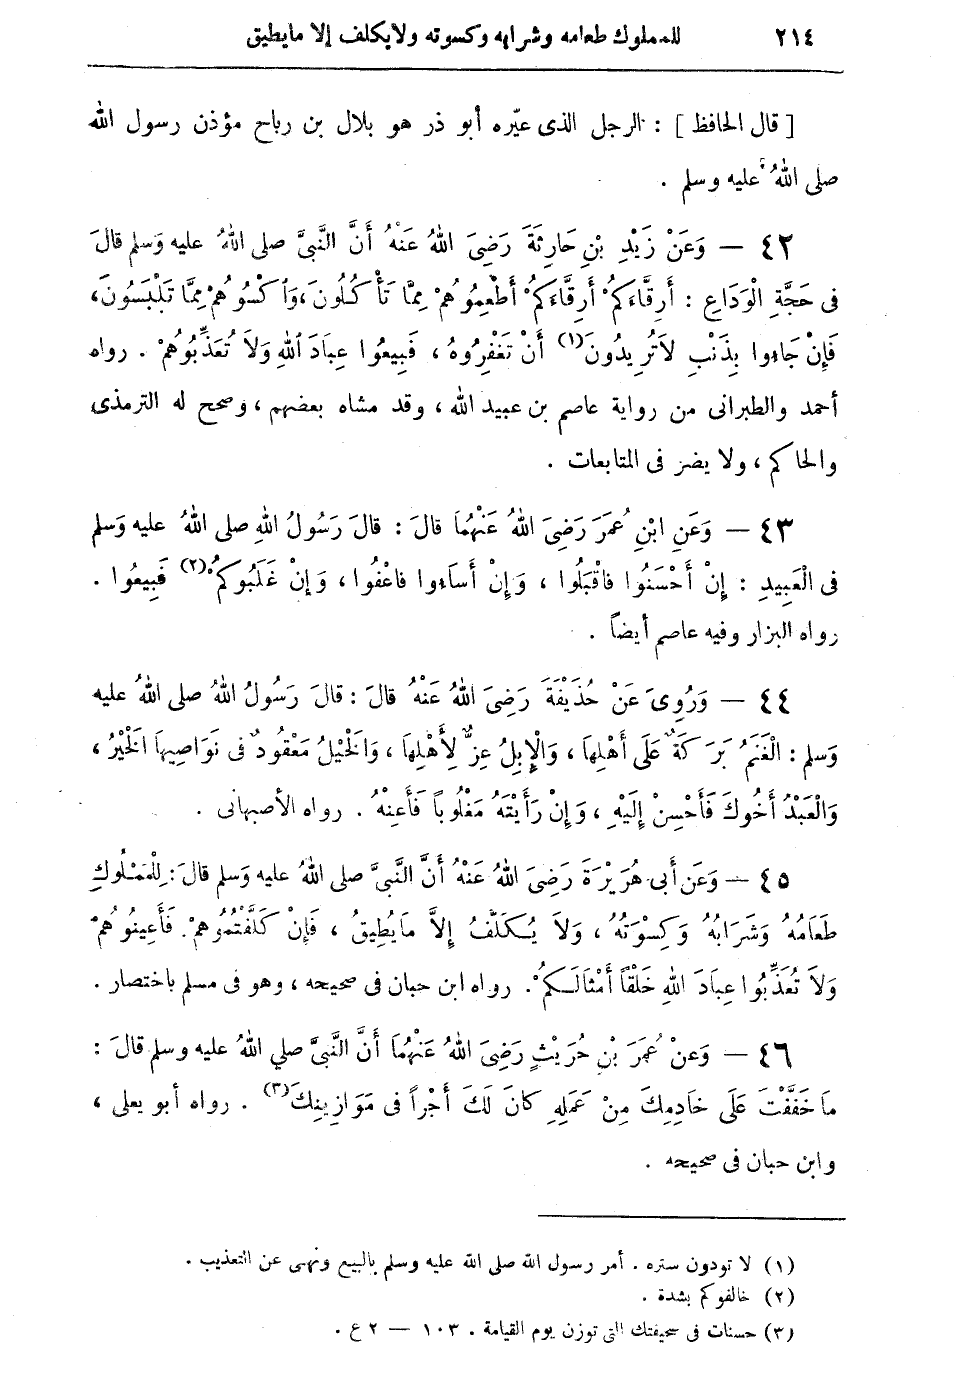 ٢١٤ للمملوك طعامه وشرابه وكسوته ولايكلف إلا مايطيق
[ قال الحافظ ] : الرجل الذى عيّره أبو ذر هو بلال بن رباح مؤذن رسول الله
صلى اللهُ عليه وسلم .
٤٢ — وَعَنْ زَيْدِ بْنِ حَارِثَةَ رَضِىَ اللهُ عَنْهُ أَنَّ النَّبِىَّ صلى اللهُ عليه وَسلم قالَ
فى حَجَّةِ الْوَدَاعِ : أَرِقَّاءَكمُ أَرِقَّاءَكمُ أَطْعِمُوهُمْ مِمَّا تَأْكُلُونَ، وَاكْسُوهُمْ مِمَّا تَلْبَسُونَ،
فَإِنْ جَاءوا بِذَنْبٍ لاَتُرِيدُونَ(١) أَنْ تَغْفِرُوهُ ، فَبِيعُوا عِبَادَ اللهِ وَلاَ تُعَذِّبُوهُمْ . رواه
أحمد والطبرانى من رواية عاصم بن عبيد الله ، وقد مشاه بعضهم ، وصحح له الترمذى
والحاكم ، ولا يضر فى المتابعات .
٤٣ — وَعَنِ ابْنِ عُمَرَ رَضِىَ اللهُ عَنْهُمَا قالَ : قالَ رَسُولُ اللهِ صلى اللهُ عليه وَسلم
فى الْعَبِيدِ : إِنْ أَحْسَنُوا فاقْبَلُوا ، وَإِنْ أَسَاءوا فاعْفُوا ، وَإِنْ غَلَبُوكمُ(٢) فَبِيعُوا .
رواه البزار وفيه عاصم أيضاً .
٤٤ — وَرُوِىَ عَنْ حُذَيْفَةَ رَضِىَ اللهُ عَنْهُ قالَ : قالَ رَسُولُ اللهُ صلى اللهُ عليه
وَسلم : الْغَنَمُ بَرَكَةٌ عَلَى أَهْلِهَا ، وَالْإِبِلُ عِزٌّ لِأَهْلِهَا ، وَالْخَيْلُ مَعْقُودٌ فى نَوَاصِيهاَ الْخَيْرُ ،
وَالْعَبْدُ أَخُوكَ فَأَحْسِنْ إِلَيْهِ ، وَإِنْ رَأَيْتَهُ مَغْلُوباً فَأَعِنْهُ . رواه الأصبهانى .
٤٥ — وَعَن أَبى هُرَيْرَةَ رَضِىَ اللهُ عَنْهُ أَنَّ النَّبىَّ صلى اللهُ عليه وَسلم قالَ : لِلْمَمْلُوكِ
طَعَامُهُ وَشَرَابُهُ وَكِسْوَتُهُ ، وَلاَ يُكَلَّفُ إِلاَّ مايُطِيقُ ، فَإِنْ كَلَّفْتُمُوهُمْ فَأَعِينُوهُمْ
وَلاَ تُعَذِّبُوا عِبَادَ اللهِ خَلْقاً أَمْثَالَكُمْ . رواه ابن حبان فى صحيحه ، وهو فى مسلم باختصار .
٤٦ — وَعنْ عُمَرَ بْنِ حُرَيْثٍ رَضِىَ اللهُ عَنْهُمَا أَنَّ النَّبىَّ صلى اللهُ عليه وسلم قالَ :
ما خَفَّفْتَ عَلَى خَادِمِكَ مِنْ عَمَلِهِ كانَ لَكَ أَجْراً فى مَوَازِينِكَ(٣) . رواه أبو يعلى ،
وابن حبان فى صحيحه .
(١) لا تودون ستره . أمر رسول الله صلى الله عليه وسلم بالبيع ونهى عن التعذيب .
(٢) خالفوكم بشدة .
(٣) حسنات فى صحيفتك التى توزن يوم القيامة . ١٠٣ — ٢ ع .